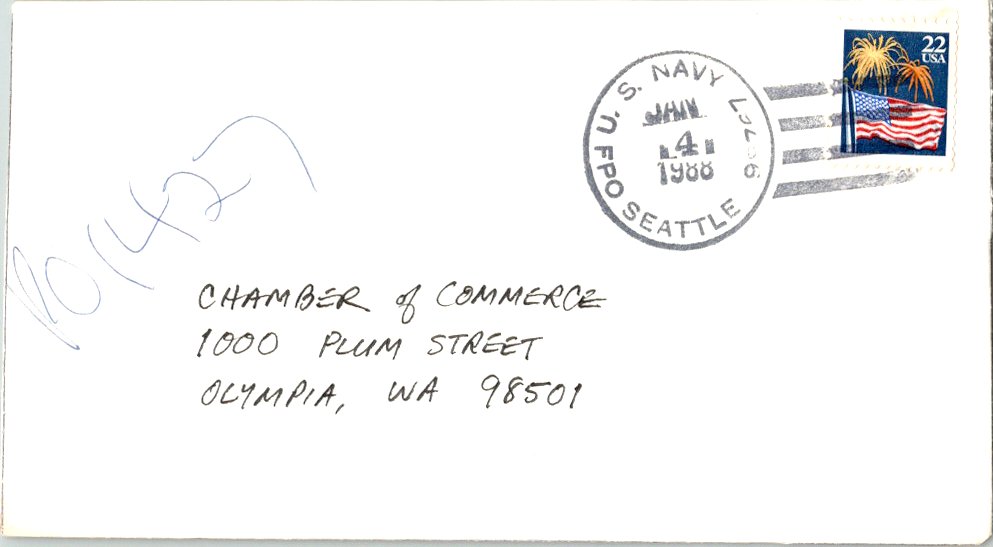 22
USA
U.S. NAVY
JAN
4
1988
FPO SEATTLE
PO 1427
CHAMBER of COMMERCE
1000 PLUM STREET
OLYMPIA, WA 98501